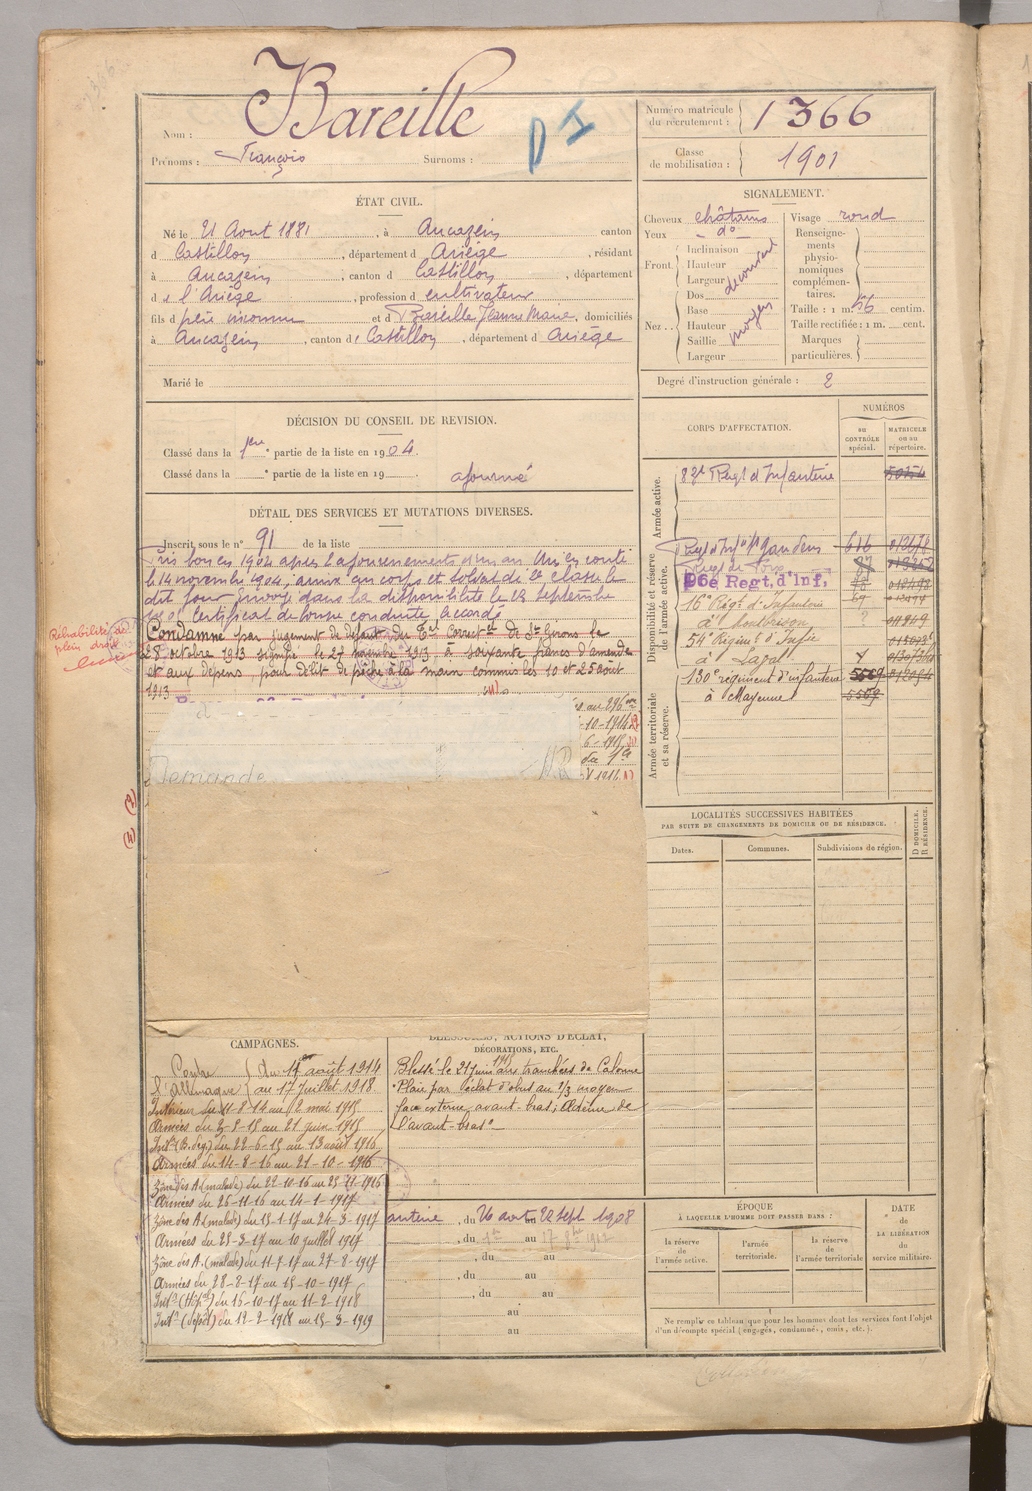 Bareille
D I
Nom :
Prénoms : François Surnoms :
Numéro matricule du recrutement : 1366
Classe de mobilisation : 1901
ÉTAT CIVIL.
Né le 21 Aout 1881, à Aucazein canton
d Castillon, département d Ariège, résidant
à Aucazein, canton d Castillon, département
de l'Ariège, profession d cultivateur
fils d père inconnu et d Bareille Jeanne Marie, domiciliés
à Aucazein, canton de Castillon, département d Ariège
Marié le
SIGNALEMENT.
Cheveux châtains
Yeux do
Front. Inclinaison Hauteur Largeur découvert
Nez .. Dos Base Hauteur Saillie Largeur moyen
Visage rond
Renseignements physionomiques complémentaires.
Taille : 1 m. 56 centim.
Taille rectifiée : 1 m. cent.
Marques particulières.
Degré d'instruction générale : 2
DÉCISION DU CONSEIL DE REVISION.
Classé dans la 1ere partie de la liste en 1904.
Classé dans la e partie de la liste en 19 ajourné
DÉTAIL DES SERVICES ET MUTATIONS DIVERSES.
Inscrit sous le n° 91 de la liste
Pris bon en 1904 après 2 ajournements d'un an
le 14 novembre 1904, arrivé au corps et soldat de 2e classe le
dit jour. Envoyé dans la disponibilité le 23 septembre
Certificat de bonne conduite accordé
Réhabilité de plein droit
Condamné par jugement de défaut du Cal Correctel de St Girons le
28 octobre 1913 signifié le 27 novembre 1913, à soixante francs d'amende
et aux dépens, pour délit de pêche à la main commis les 10 et 25 août
1913
au 296
-10-1914
6-1915
du 7e
Demande
CORPS D'AFFECTATION.
NUMÉROS
au CONTRÔLE spécial.
MATRICULE ou au répertoire.
Armée active.
Disponibilité et réserve de l'armée active.
Armée territoriale et sa réserve.
83e Regt d'Infanterie
Regt d'Infie St Gaudens 616
Regt de Foix
96e Regt. d'Inf.
16e Régt d'Infanterie
à Montbrison
54e Régimt d'Infie
à Laval
130e régiment d'infanterie 5569
à Mayenne 5569
LOCALITÉS SUCCESSIVES HABITÉES
PAR SUITE DE CHANGEMENTS DE DOMICILE OU DE RÉSIDENCE.
Dates. Communes. Subdivisions de région. D DOMICILE. R RÉSIDENCE.
CAMPAGNES.
Contre l'Allemagne du 11 août 1914
au 17 juillet 1918.
Intérieur du 11-8-14 au 2 mai 1915
Armées du 3-5-15 au 21 juin 1915
Intr (B. deg.) du 22-6-15 au 13 août 1916
Armées du 14-8-16 au 21-10-1916
Zône des A (malade) du 22-10-16 au 25-11-1916
Armées du 26-11-16 au 14-1-1917
Zône des A (malade) du 15-1-17 au 24-3-1917
Armées du 25-3-17 au 10 juillet 1917
Zône des A. (malade) du 11-7-17 au 27-8-1917
Armées du 28-8-17 au 15-10-1917
Intr (Hôpal) du 16-10-17 au 11-2-1918
Intr (dépôt) du 12-2-1918 au 15-3-1919
BLESSURES, ACTIONS D'ÉCLAT,
DÉCORATIONS, ETC.
Blessé le 21 juin 1915 aux tranchées de Calonne
Plaie par éclat d'obus au 1/3 moyen
face externe avant-bras ; Oedème de
l'avant-bras
anterie, du 26 aout au 22 sept 1908
, du au
, du au
, du au
, du au
au
au
ÉPOQUE
À LAQUELLE L'HOMME DOIT PASSER DANS :
la réserve de l'armée active.
l'armée territoriale.
la réserve de l'armée territoriale
DATE de la LIBÉRATION du service militaire.
Ne remplir ce tableau que pour les hommes dont les services font l'objet
d'un décompte spécial (engagés, condamnés, omis, etc.).